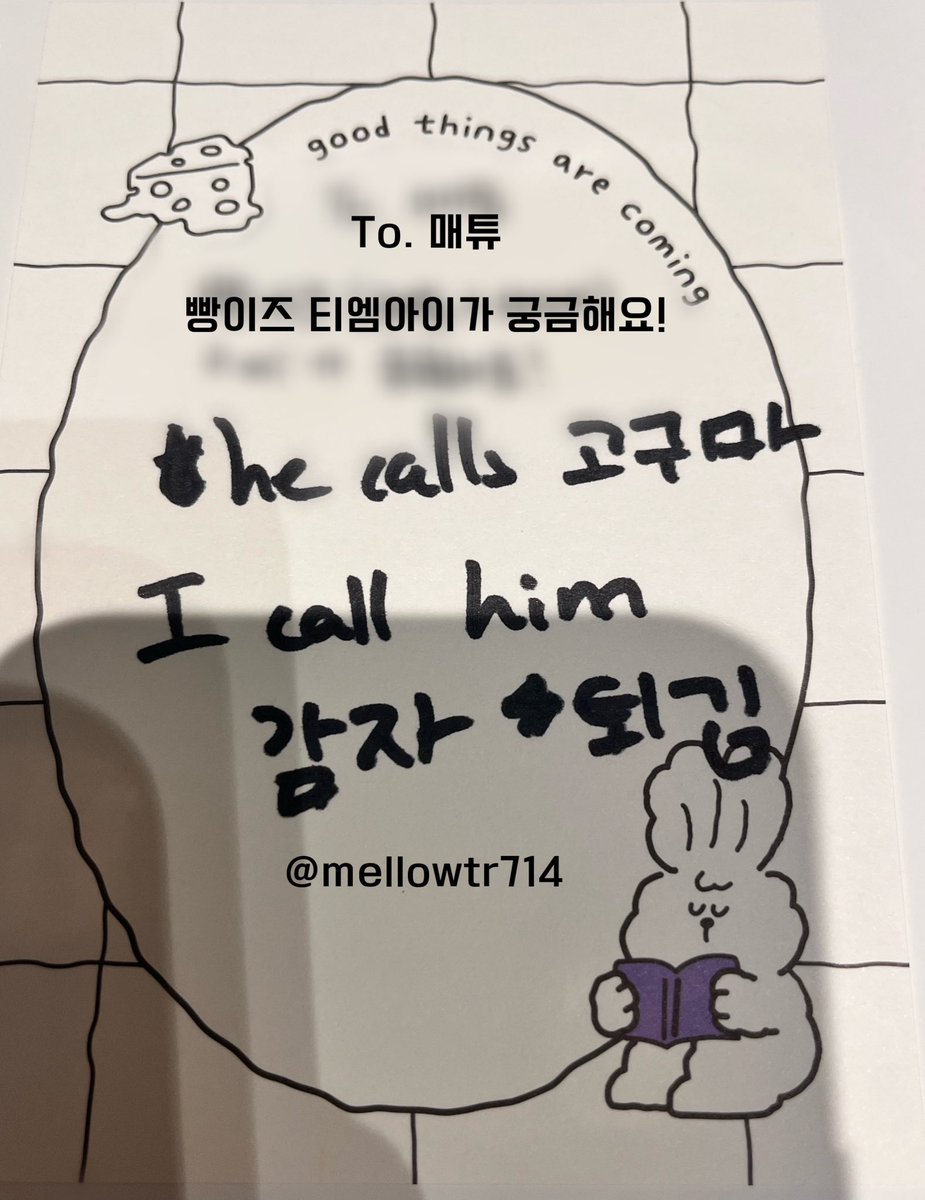 good things are coming
To. 매튜
빵이즈 티엠아이가 궁금해요!
the calls 고구마
I call him
감자 튀김
@mellowtr714